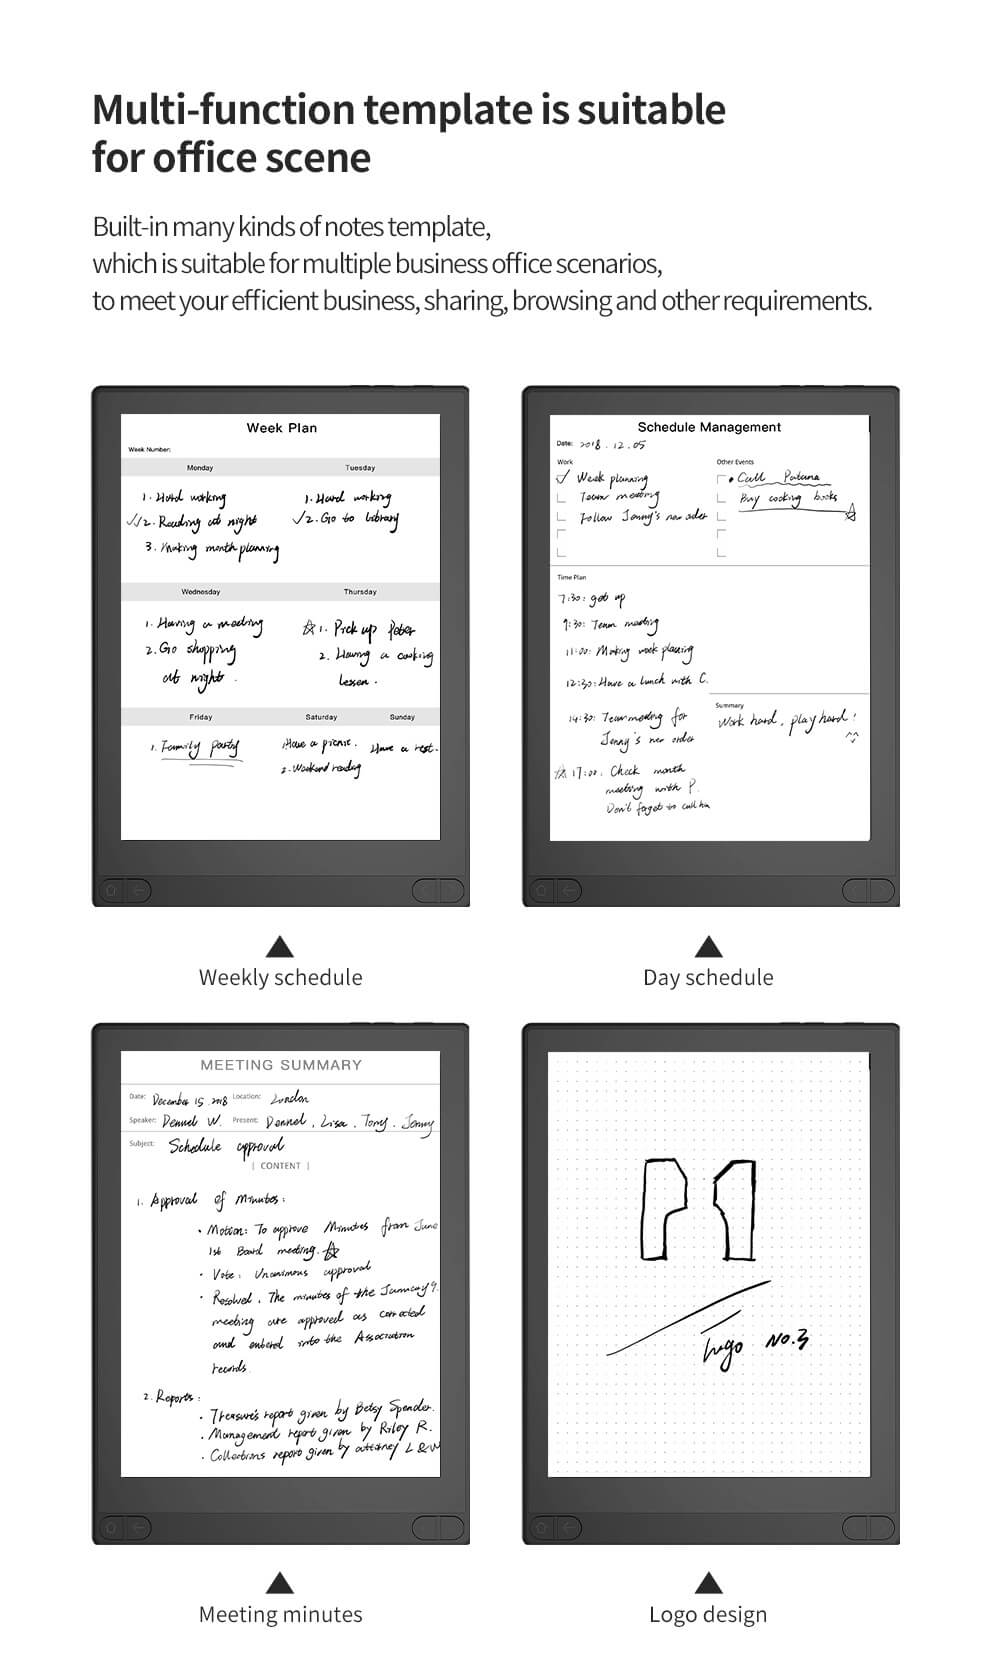 Multi-function template is suitable
for office scene
Built-in many kinds of notes template,
which is suitable for multiple business office scenarios,
to meet your efficient business, sharing, browsing and other requirements.
Week Plan
Week Number:
Monday Tuesday
1. Hard working
√√2. Reading at night
3. Making month planning
1. Hard working
√2. Go to library
Wednesday Thursday
1. Having a meeting
2. Go shopping
at night.
☆1. Pick up Peter
2. Having a cooking
lesson.
Friday Saturday Sunday
1. Family party
1. Have a picnic.
2. Weekend reading
Have a rest.
Weekly schedule
Schedule Management
Date: 2018.12.05
Work
Week planning
Team meeting
Follow Jenny's new order
Other Events
• Call
Buy cooking books
Time Plan
7:30: get up
9:30: Team meeting
11:00: Making work planning
12:30: Have a lunch with C.
14:30: Team meeting for
Jenny's new order
☆17:00. Check month
meeting with P.
Don't forget to call
Summary
Work hard, play hard!
^^
Day schedule
MEETING SUMMARY
Date: December 15 2018 Location: London
Speaker: W. Present: Lisa, Tony, Jenny
Subject: Schedule approval
| CONTENT |
1. Approval of Minutes:
• Motion: To approve Minutes from June
1st Board meeting. ☆
• Vote: Unanimous approval
• Resolved. The minutes of the January 9.
meeting are approved as corrected
and entered into the Association
records.
2. Reports:
• Treasure's report given by Betsy Spender.
• Management report given by Riley R.
• Collections report given by attorney L & W
Meeting minutes
P1
Logo NO.3
Logo design